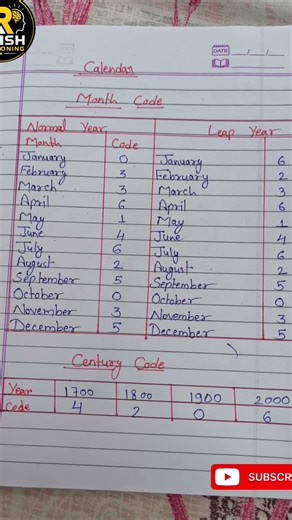 R
ISH
ONING
DATE
Calendar
Month Code
Normal Year Leap Year
Month Code
January 0 January 6
February 3 February 2
March 3 March 3
April 6 April 6
May 1 May 1
June 4 June 4
July 6 July 6
August 2 August 2
September 5 September 5
October 0 October 0
November 3 November 3
December 5 December 5
Century Code
Year 1700 1800 1900 2000
Code 4 2 0 6
SUBSCR